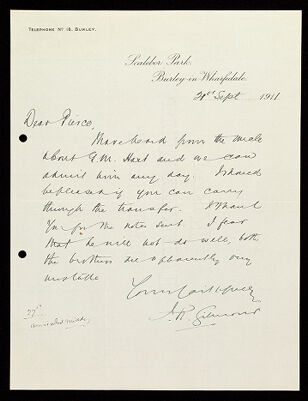 TELEPHONE Nº 16, BURLEY.
Scalebor Park,
Burley-in-Wharfedale.
21st Sept 1911
Dear Pierce,
Have heard from the uncle
about G.M. Hart and we can
admit him any day. I should
be pleased if you can carry
through the transfer. I thank
you for the notes sent. I fear
that he will not do well, both
the brothers are apparently very
unstable
Yours faithfully
J.R. Gilmour